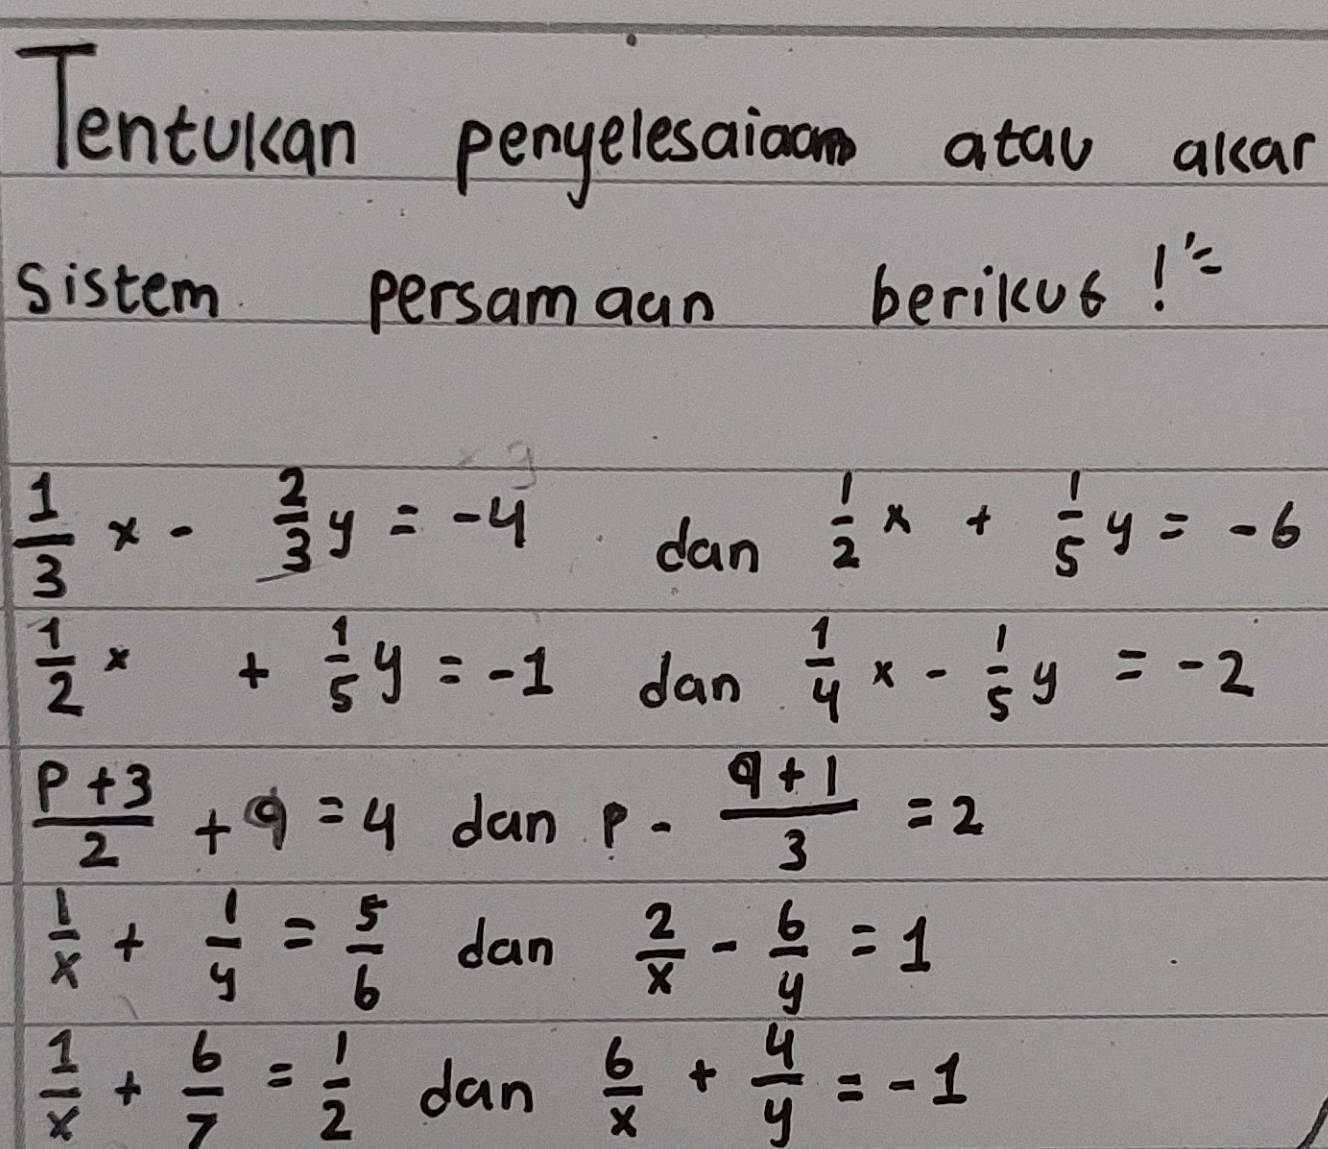 Tentukan penyelesaiaan atau akar
sistem persamaan berikut !'=
1/3 x - 2/3 y = -4 dan 1/2 x + 1/5 y = -6
1/2 x + 1/5 y = -1 dan 1/4 x - 1/5 y = -2
p+3/2 + q = 4 dan p - q+1/3 = 2
1/x + 1/y = 5/6 dan 2/x - 6/y = 1
1/x + 6/7 = 1/2 dan 6/x + 4/y = -1